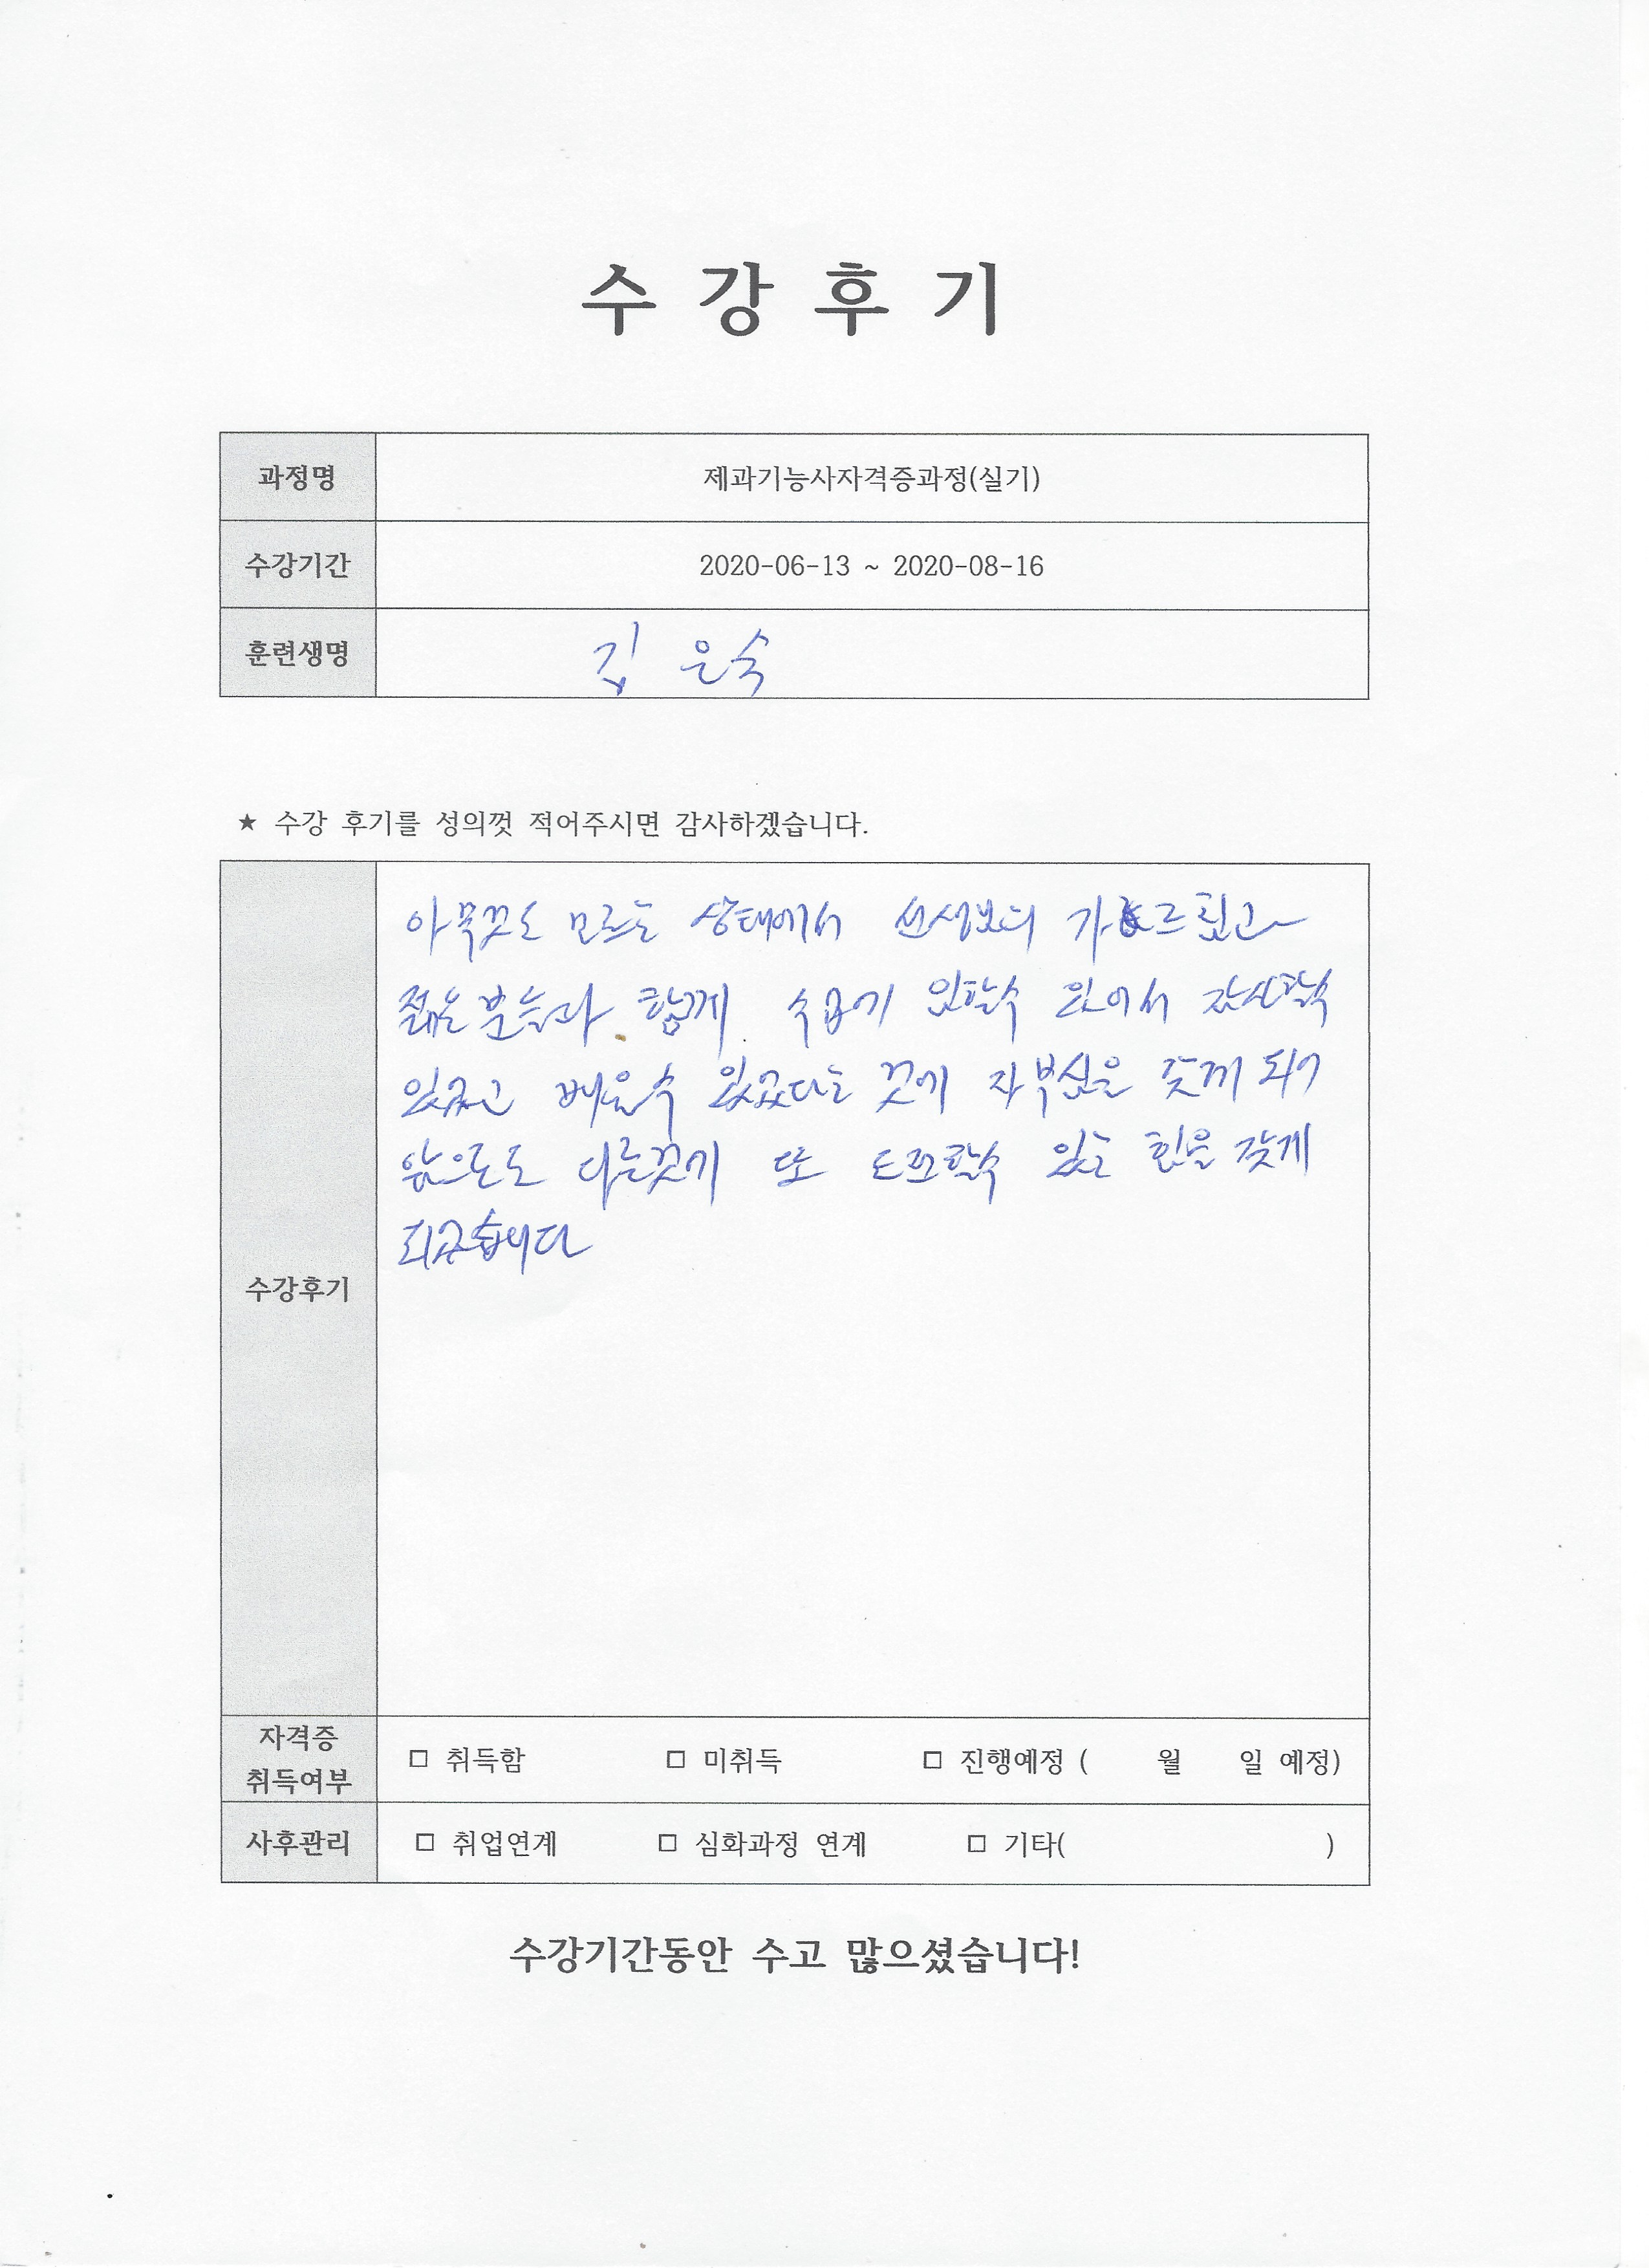 수 강 후 기
과정명 제과기능사자격증과정(실기)
수강기간 2020-06-13 ~ 2020-08-16
훈련생명 김 은숙
★ 수강 후기를 성의껏 적어주시면 감사하겠습니다.
수강후기
아묵것도 모르는 상태에서 선생님의 가르침고~
젊은분들과 함께 수업에 임할수 있어서
있었고 배울수 있었다는 것에 자부심을 갖게 되어
앞으로도 다른것에 또 도전할수 있는 힘을 갖게
되었습니다
자격증
취득여부 □ 취득함 □ 미취득 □ 진행예정 ( 월 일 예정)
사후관리 □ 취업연계 □ 심화과정 연계 □ 기타( )
수강기간동안 수고 많으셨습니다!